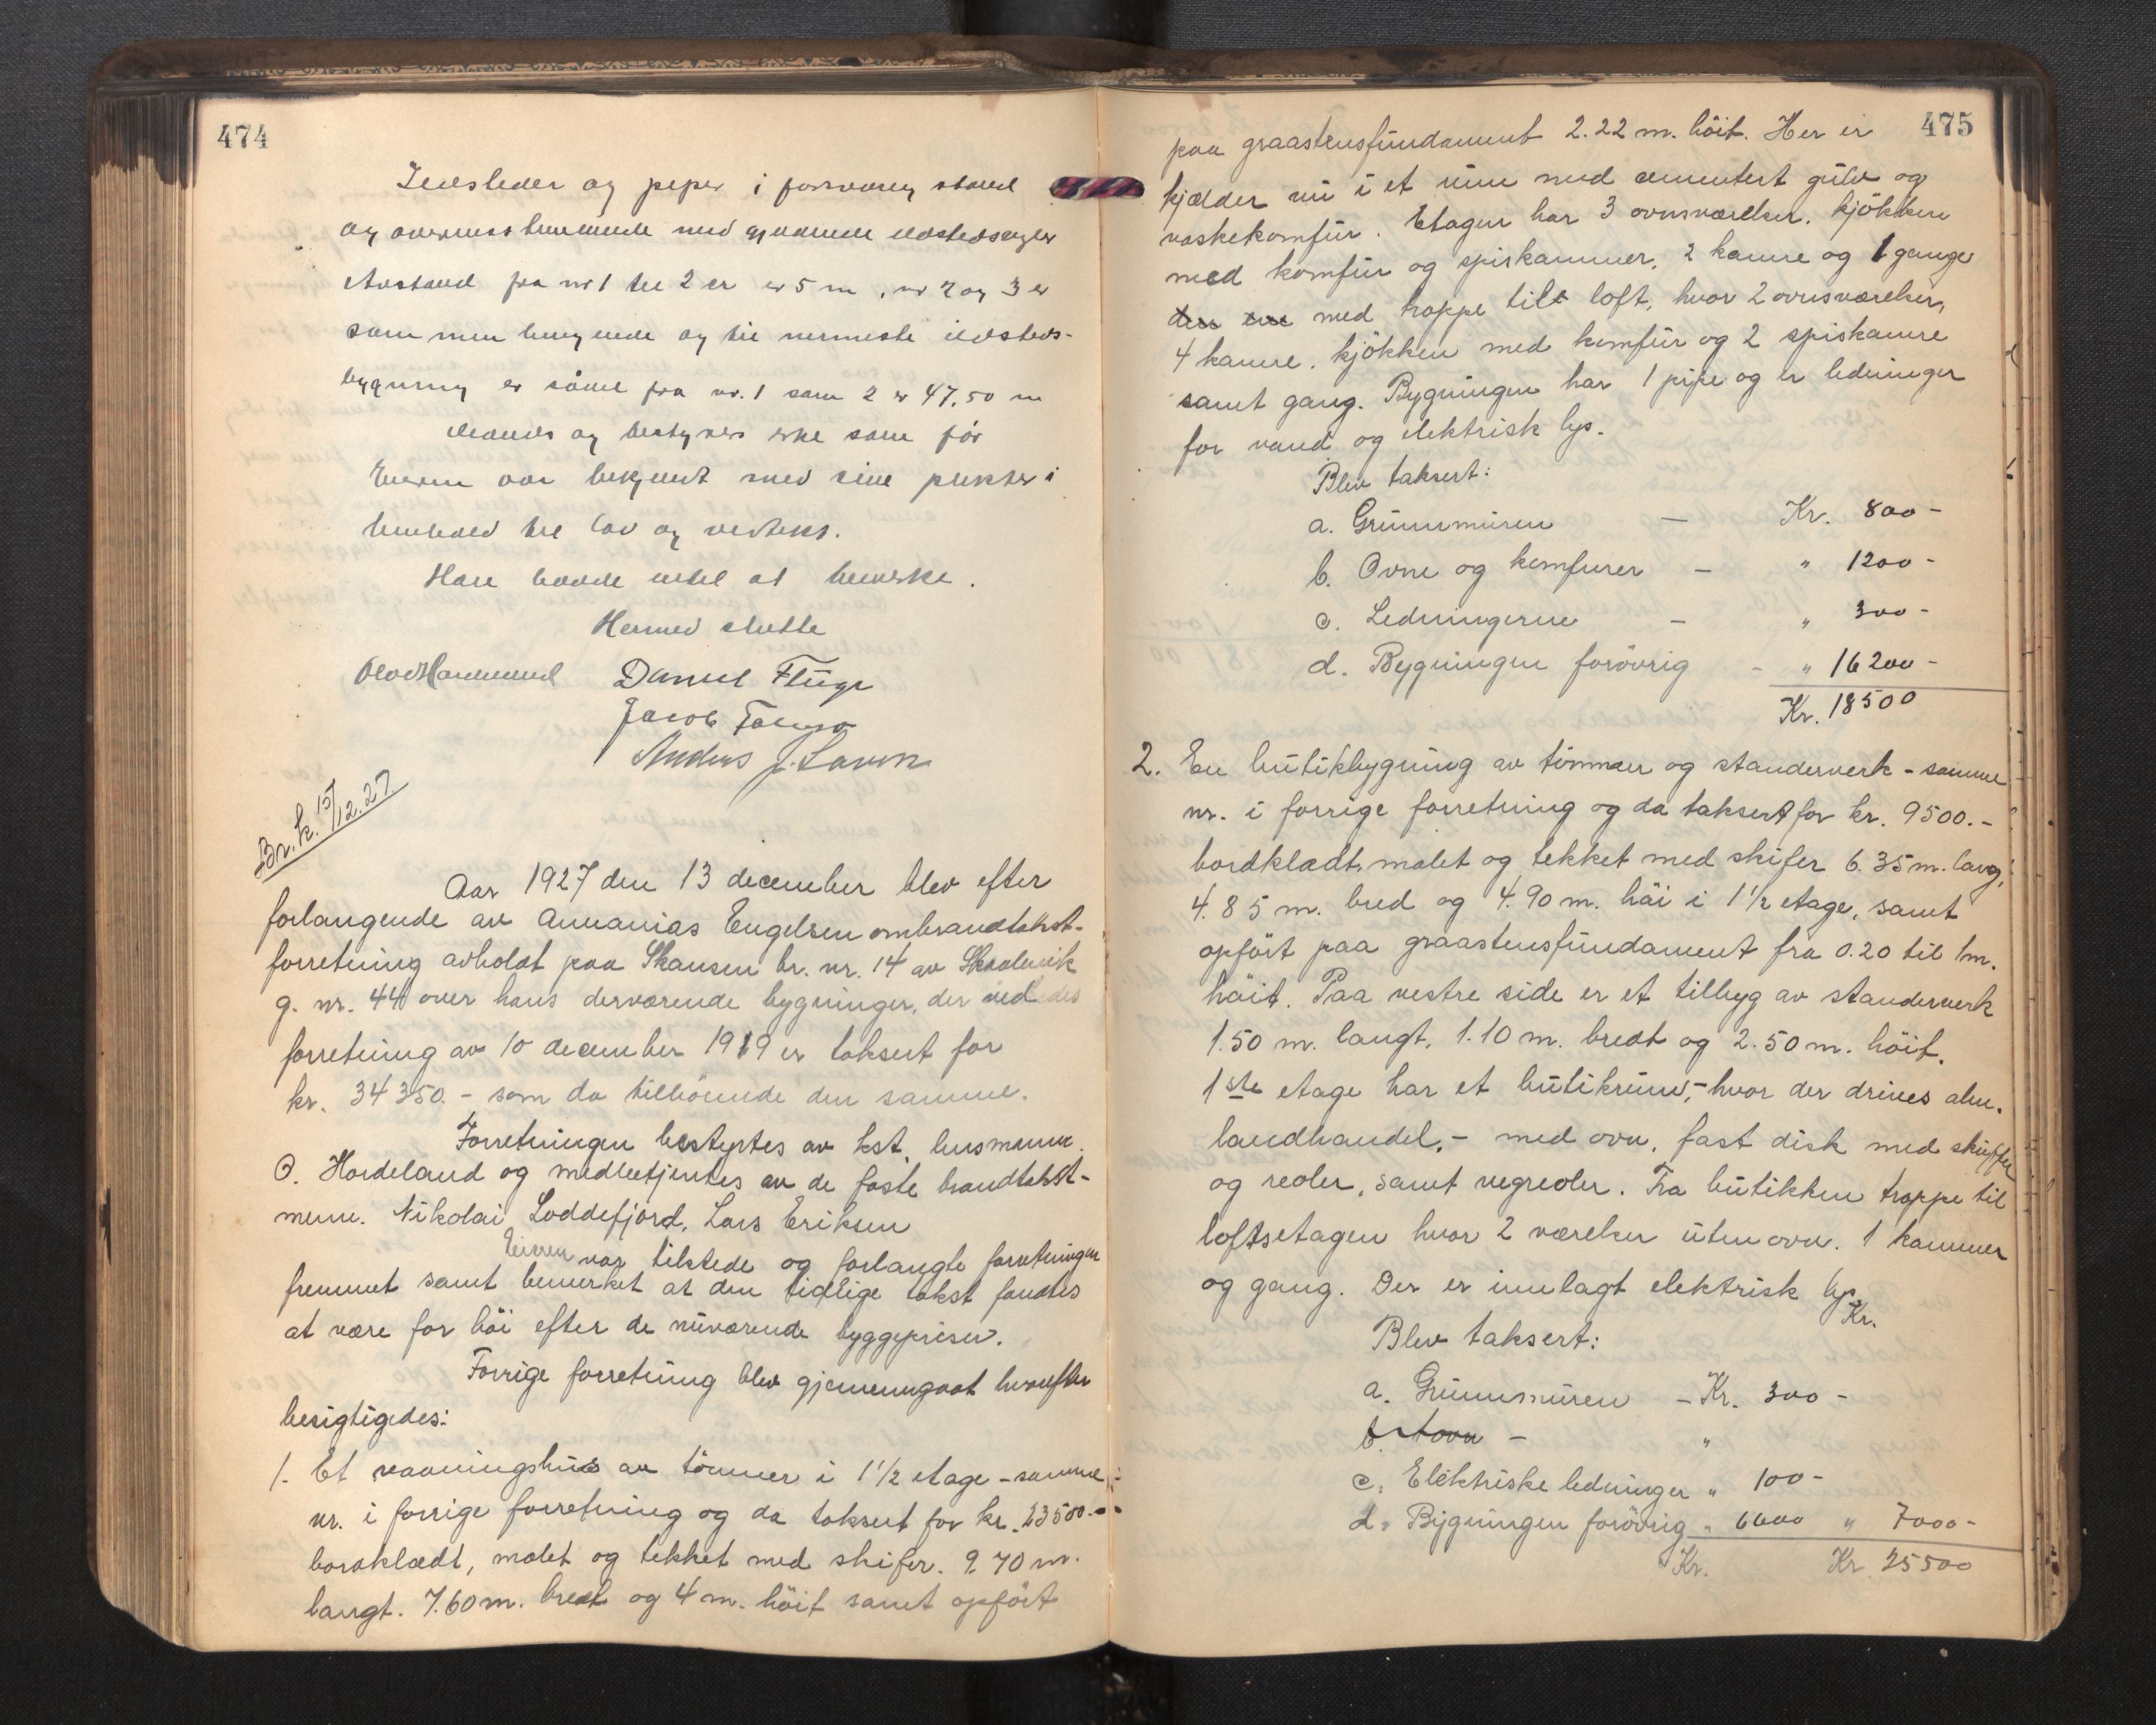 474
Ildsteder og piper i forsvarlig stand
og overensstemmende med gjældende ildstedsregler
Avstand fra nr 1 til 2 er 5 m, nr 2 og 3 er
sammenbyggende og til nærmeste ildsteds-
bygning er såvel fra nr. 1 som 2 er 47,50 m
som før
Eieren var bekjendt med sine plikter i
henhold til lov og vedtekt.
Han havde intet at bemerke.
Hermed slutte
Olav Hordeland Daniel Fluge
Jacob
Anders J. Lavon
Br.k. 15/12.27
Aar 1927 den 13 december blev efter
forlangende av Annanias Engelsen ombrandtakst-
forretning avholdt paa Skansen br. nr. 14 av Skaalevik
g. nr. 44 over hans derværende bygninger, der ved
forretning av 10 december 1919 er taksert for
kr. 34350.- som da tilhørende den samme.
Forretningen bestyrtes av kst. lensmann
O. Hordeland og medbetjentes av de faste brandtakst-
menn. Nikolai Loddefjord, Lars Eriksen
Eieren var tilstede og forlangte forretningen
fremmet samt bemerket at den tidlige takst fandtes
at være for höi efter de nuværende byggepriser.
Forrige forretning blev gjennemgaat hvorefter
besigtigedes:
1. Et vaaningshus av tömmer i 1 1/2 etage - samme
nr. i forrige forretning og da taksert for kr. 23500.-
bordklædt, malet og tekket med skifer. 9.70 m.
langt. 7.60 m. bredt og 4 m. höit samt opfört
475
paa graastensfundament 2.22 m. höit. Her er
kjælder nu i et rum med cementert gulv og
vaskekomfur. Etagen har 3 ovnsværelser. kjökken
med komfur og spiskammer, 2 kamre og 1 gange
den ene med trappe til loft, hvor 2 ovnsværelser,
4 kamre. kjökken med komfur og 2 spiskamre
samt gang. Bygningen har 1 pipe og er ledninger
for vand og elektrisk lys.
Blev taksert:
a. Grunnmuren — Kr. 800 -
b. Ovne og komfurer — " 1200 -
c. Ledningerne — " 300 -
d. Bygningen forövrig - " 16200 -
Kr. 18500
2. En butikbygning av tömmer og standerverk - samme
nr. i forrige forretning og da taksert for kr. 9500.-
bordklædt, malet og tekket med skifer 6.35 m. lang,
4.85 m. bred og 4.90 m. höi i 1 1/2 etage, samt
opfört paa graastensfundament fra 0.20 til 1m.
höit. Paa vestre side er et tilbyg av standerverk
1.50 m. langt, 1.10 m. bredt og 2.50 m. höit.
1ste etage har et butikrum, - hvor der drives alm.
landhandel, - med ovn, fast disk med skuffer
og reoler, samt vegreoler. Fra butikken trappe til
loftsetagen hvor 2 værelser uten ovn. 1 kammer
og gang. Der er innlagt elektrisk lys.
Kr.
Blev taksert:
a. Grunnmuren - Kr. 300 -
b. 1 ovn - "
c. Elektriske ledninger " 100 -
d. Bygningen forövrig " 6600 " 7000 -
Kr. Kr. 25500